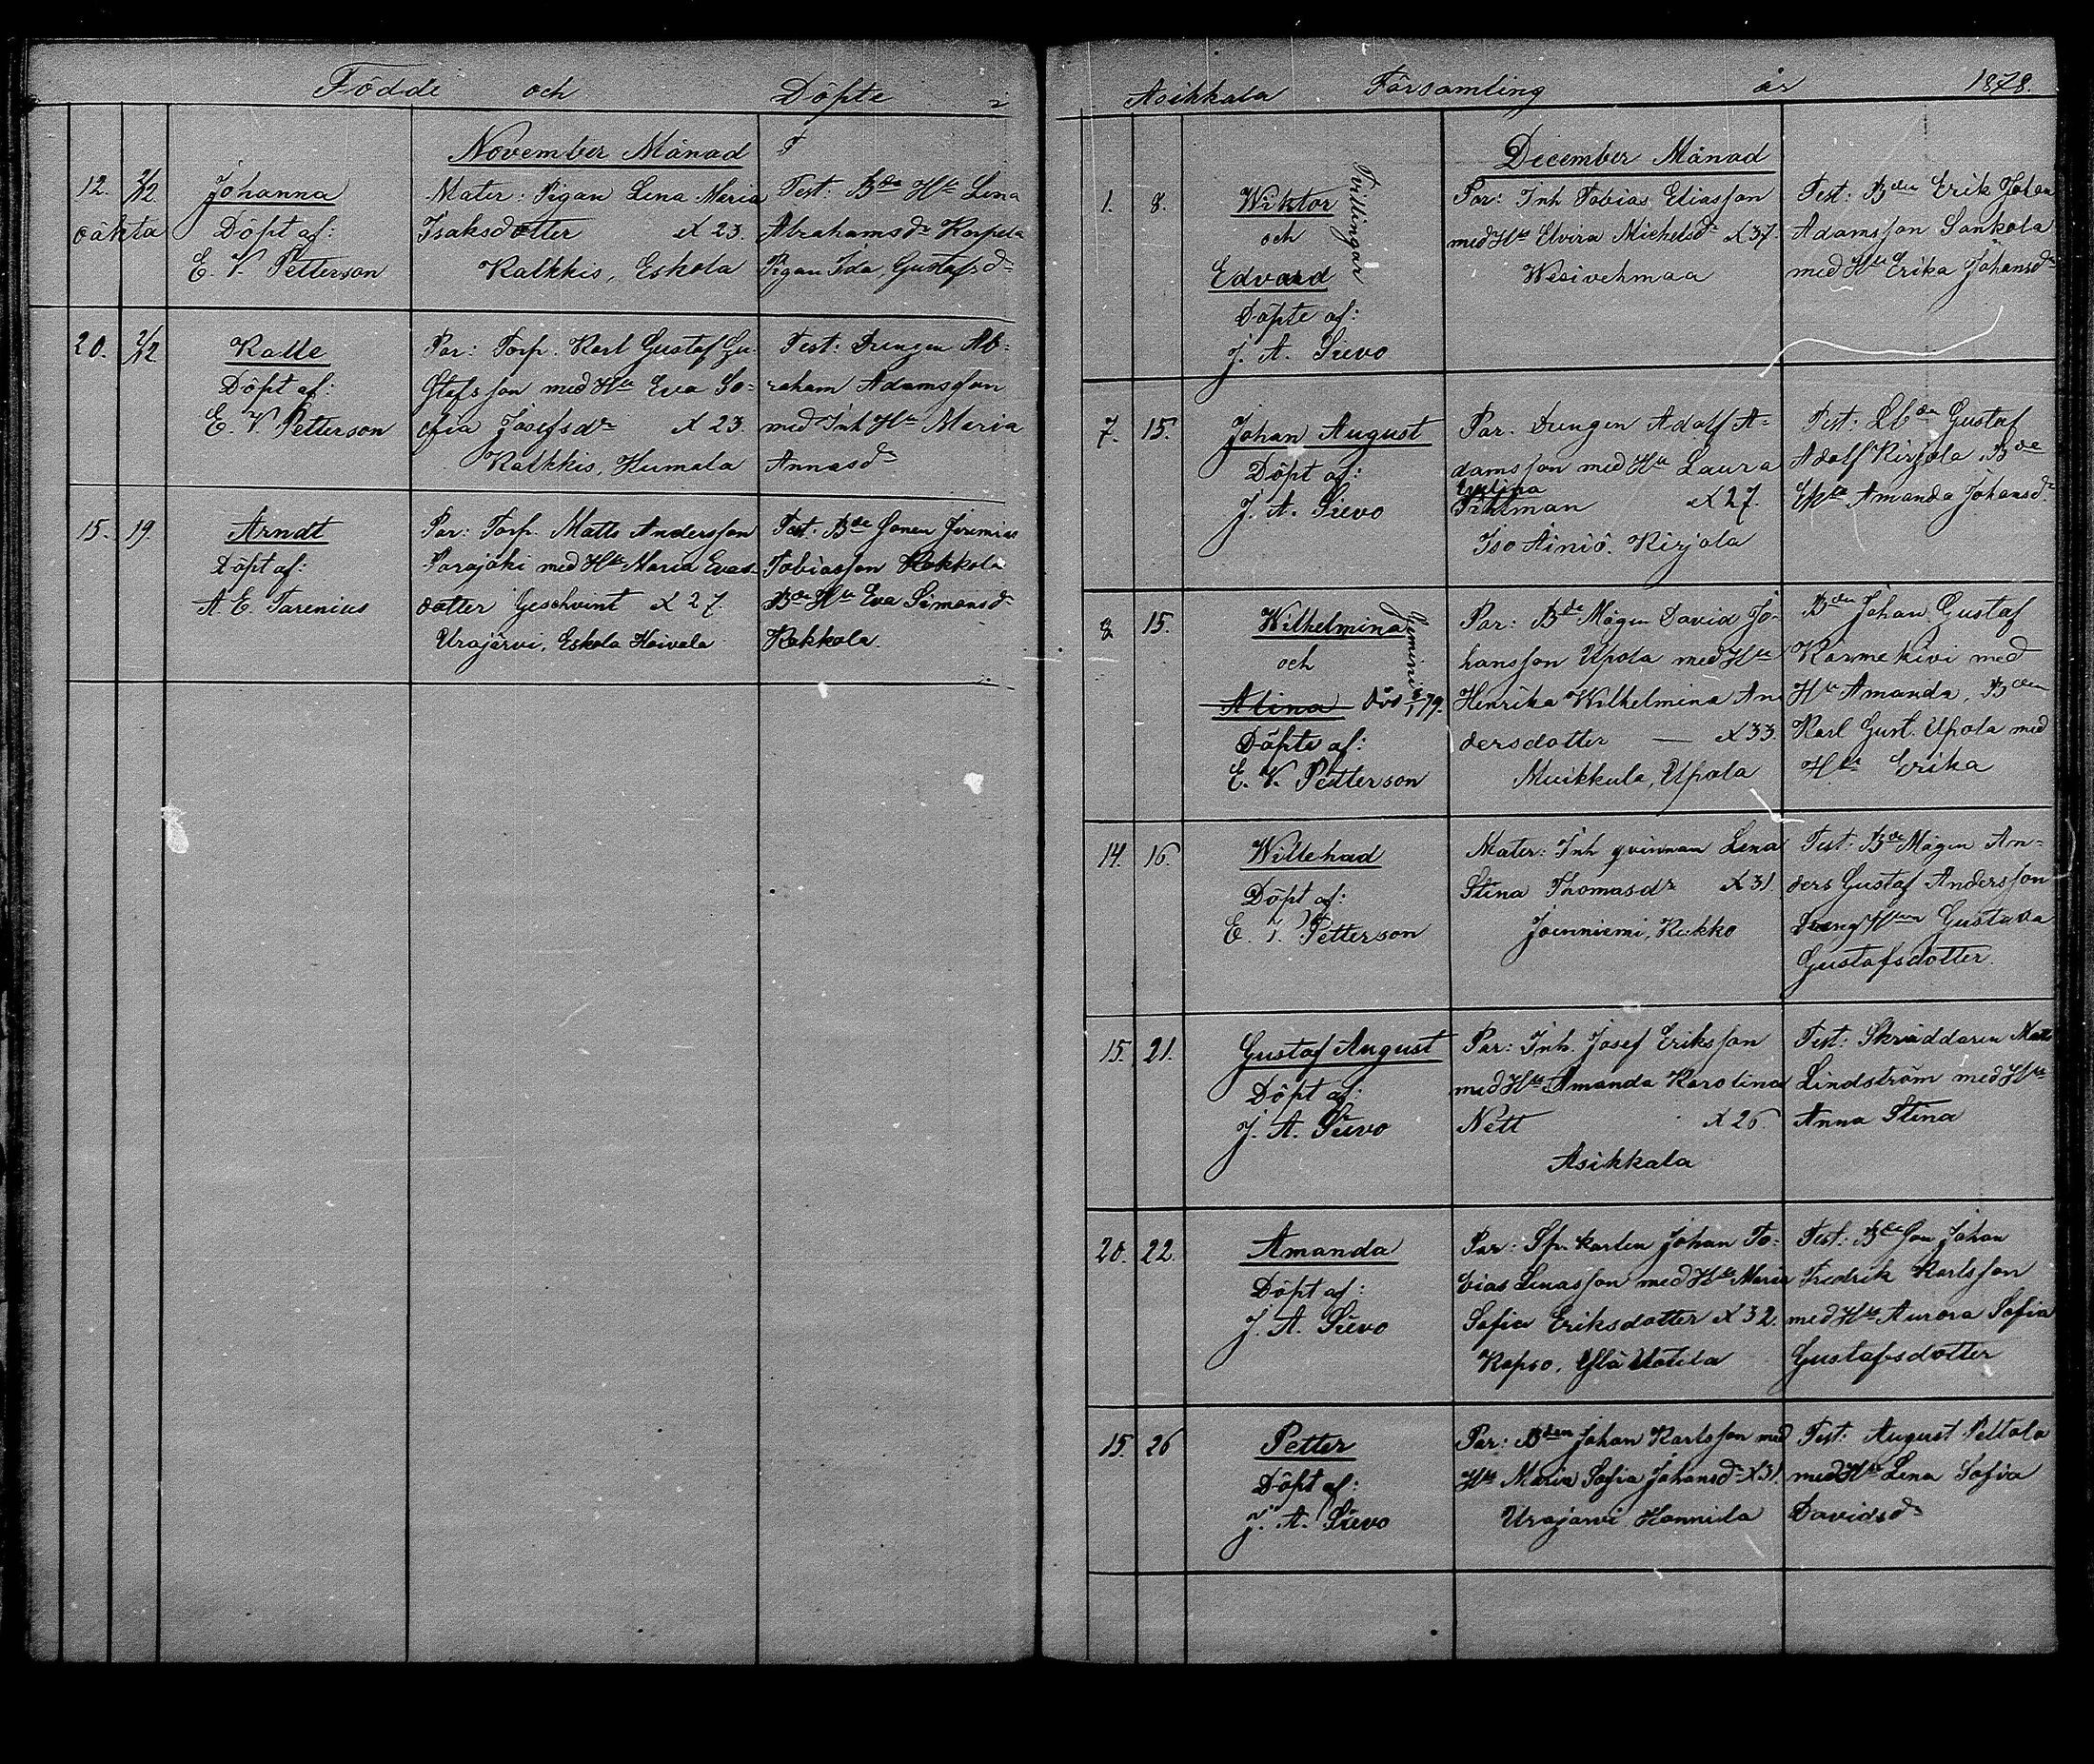 Födde och Döpte i
November Månad
12. 2/12 Johanna Mater: Pigan Lena Maria Test: Bde Hu Lena
oäkta Döpt af: Isaksdotter x 23. Abrahamsdr Korpela
E. V. Petterson Kalkkis, Eskola Pigan Ida Gustafsdr
20. 2/12 Kalle Par: Torp. Karl Gustaf Gu- Test: Drengen Ab-
Döpt af: stafsson med Hu Eva So- raham Adamsson
E. V. Petterson fia Josefsdr x 23. med Inh Hu Maria
Kalkkis, Humala Annasdr
15. 19. Arndt Par: Torp. Matts Andersson Test. Bde Sonen Jeremias
Döpt af: Parajoki med Hu Maria Evas- Tobiasson Kokkola
A. E. Tarenius dotter Geschvint x 27. Bde Hu Eva Simonsdr
Urajärvi, Eskola Koivula Kokkola.
Asikkala Församling år 1878.
December Månad
1. 8. Wiktor Tvillingar Par: Inh Tobias Eliasson Test: Bden Erik Johan
och med Hu Elvira Michelsdr x 37. Adamsson Sankola
Edvard Wesivehmaa med Hu Erika Johansdr
Döpte af:
J. A. Sievo
7. 15. Johan August Par. Drengen Adolf A- Test: Lbden Gustaf
Döpt af: damsson med Hu Laura Adolf Kirjola Bde
J. A. Sievo Evelina Amanda Johansdr
Pihlman x 27.
Iso Äiniö. Kirjola
8 15. Wilhelmina Gemini Par: Bde Mågen David Jo- Bden Johan Gustaf
och hansson Upola med Hu Karmekivi med
Alina död 6/1 79. Henrika Wilhelmina An- Hu Amanda, Bden
Döpte af: dersdotter — x 33. Karl Gust. Upola med
E. V. Petterson Muikkula, Upola Hu Erika
14. 16. Willehad Mater: Inh qvinnan Lena Test: Bde Mågen An-
Döpt af: Stina Thomasdr x 31 ders Gustaf Andersson
E. V. Petterson Joenniemi, Kukko Dreng Hun Gustava
Gustafsdotter.
15. 21. Gustaf August Par: Inh. Josef Eriksson Test: Skräddaren Matts
Döpt af: med Hu Amanda Karolina Lindström med Hu
J. A. Sievo Nett x 26. Anna Stina
Asikkala
20. 22. Amanda Par: Sp. karlen Johan To- Test: Bde Son Johan
Döpt af: bias Lenasson med Hu Maria Fredrik Karlsson
J. A. Sievo Sofia Eriksdotter x 32. med Hu Aurora Sofia
Kopso, Ylä Uotila Gustafsdotter
15. 26 Petter Par: Bden Johan Karlsson med Test: August Peltola
Döpt af: Hu Maria Sofia Johansdr x 31. med Hu Lena Sofia
J. A. Sievo Urajärvi Hannila Davidsdr